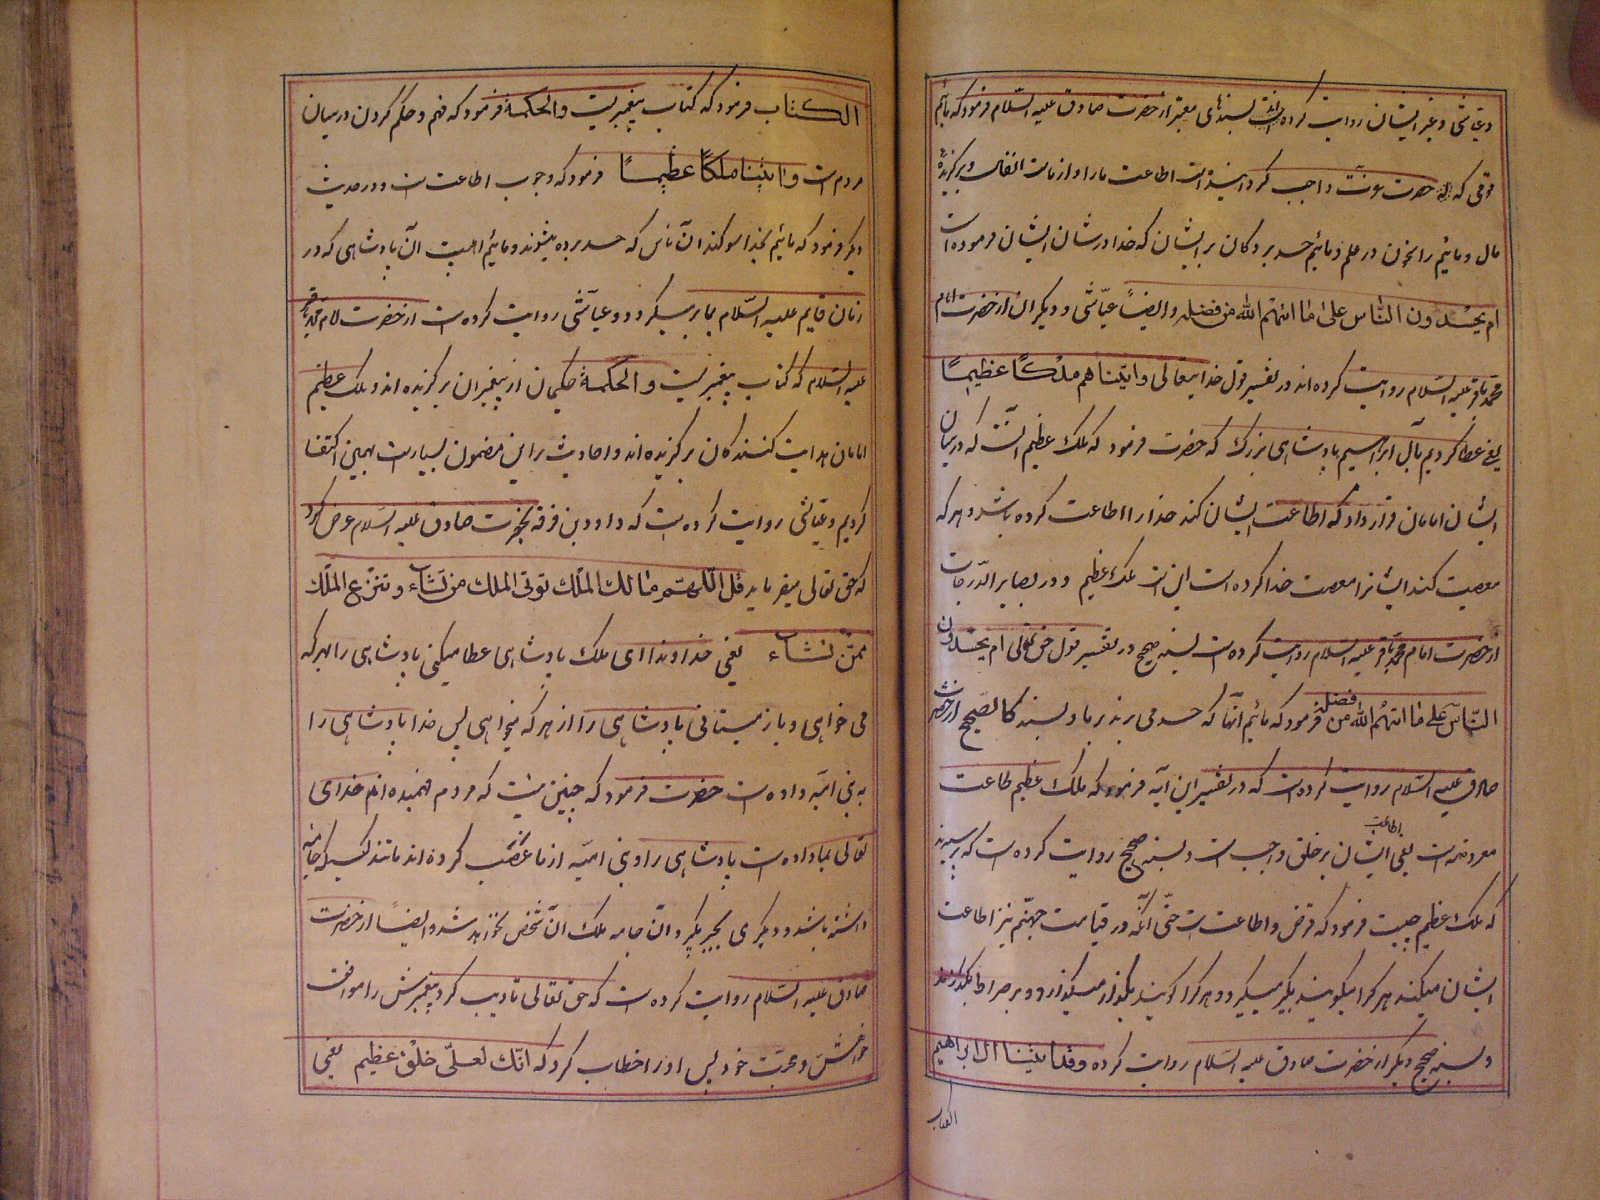 و عیاشی و غیر ایشان روایت کرده‌اند بسندهای معتبر از حضرت صادق علیه السلام فرمود که مائیم
قومی که حضرت عزت واجب کردانیده است اطاعت ما را و از ماست انفال و برگزیده
مال و مائیم راسخون در علم و مائیم حسد بردگان بر ایشان که خدا در شان ایشان فرموده است
ام یحسدون الناس علی ما اتیهم الله من فضله و ایضاً عیّاشی و دیگران از حضرت امام
محمد باقر علیه السلام روایت کرده اند در تفسیر قول خدایتعالی و اتیناهم ملکاً عظیماً
یعنی عطا کردیم بآل ابراهیم پادشاهی بزرگ که حضرت فرمود که ملک عظیم آنست که در میان
ایشان امامان قرار داد که اطاعت ایشان کند خدا را اطاعت کرده باشد و هر که
معصیت کند ایشانرا معصیت خدا کرده است این است ملک عظیم و در بصایر الدرجات
از حضرت امام محمد باقر علیه السلام روایت کرده است بسند صحیح در تفسیر قول حق تعالی ام یحسدون
النّاس علی ما اتیهم الله من فضله فرمود که مائیم آنها که حسد می برند بر ما و بسند کالصحیح از حضرت
صادق علیه السلام روایت کرده است که در تفسیر این آیه فرمود که ملک عظیم طاعت
مفروضه است یعنی اطاعت ایشان بر خلق واجب است و بسند صحیح روایت کرده است که پرسیدند
که ملک عظیم چیست فرمود که فرض و اطاعت است حتّی آنکه در قیامت جهنّم نیز اطاعت
ایشان میکند هر کرا میکویند بکیر میکیرد و هر کرا کویند بکذار میکذارد و بر صراط
و بسند صحیح دیگر از حضرت صادق علیه السلام روایت کرده و قد اتینا ال ابراهیم
الکتاب
الکتاب فرمود که کتاب پیغمبریست و الحکمة فرمود که فهم و حکم کردن در میان
مردم است و اتیناهم ملکاً عظیماً فرمود که وجوب اطاعت است و در حدیث
دیگر فرمود که مائیم بخدا سوکند آن ناس که حسد برده میشوند و مائیم اهلیت آن پادشاهی که در
زمان قایم علیه السلام بما برمیکردد و عیاشی روایت کرده است از حضرت امام محمد باقر
علیه السلام که کتاب پیغمبریست و الحکمة حکیمان از پیغمبران برگزیده اند و ملک عظیم
امامان هدایت کنندکان برگزیده اند و احادیث بر این مضمون بسیار است بهمین اکتفا
کردیم و عیاشی روایت کرده است که داود بن فرقد بحضرت صادق علیه السلام عرض کرد
که حق تعالی میفرماید قل اللهم مالک الملک توتی الملک من تشاء و تنزع الملک
ممّن تشاء یعنی خداوندا ای ملک پادشاهی عطا میکنی پادشاهی را بهر که
می خواهی و باز میستانی پادشاهی را از هر که میخواهی پس خدا پادشاهی را
به بنی امیه داده است حضرت فرمود که چنین نیست که مردم فهمیده اند خدای
تعالی بما داده است پادشاهی را و بنی امیّه از ما غصب کرده اند مانند کسیکه جامه
داشته باشد و دیگری بجبر بگیرد و آن جامه ملک آن شخص نخواهد شد و ایضاً از حضرت
صادق علیه السلام روایت کرده است که حق تعالی تادیب کرد پیغمبرش را موافق
خواهش و محبّت خود پس او را خطاب کرد که انّک لعلی خلق عظیم یعنی